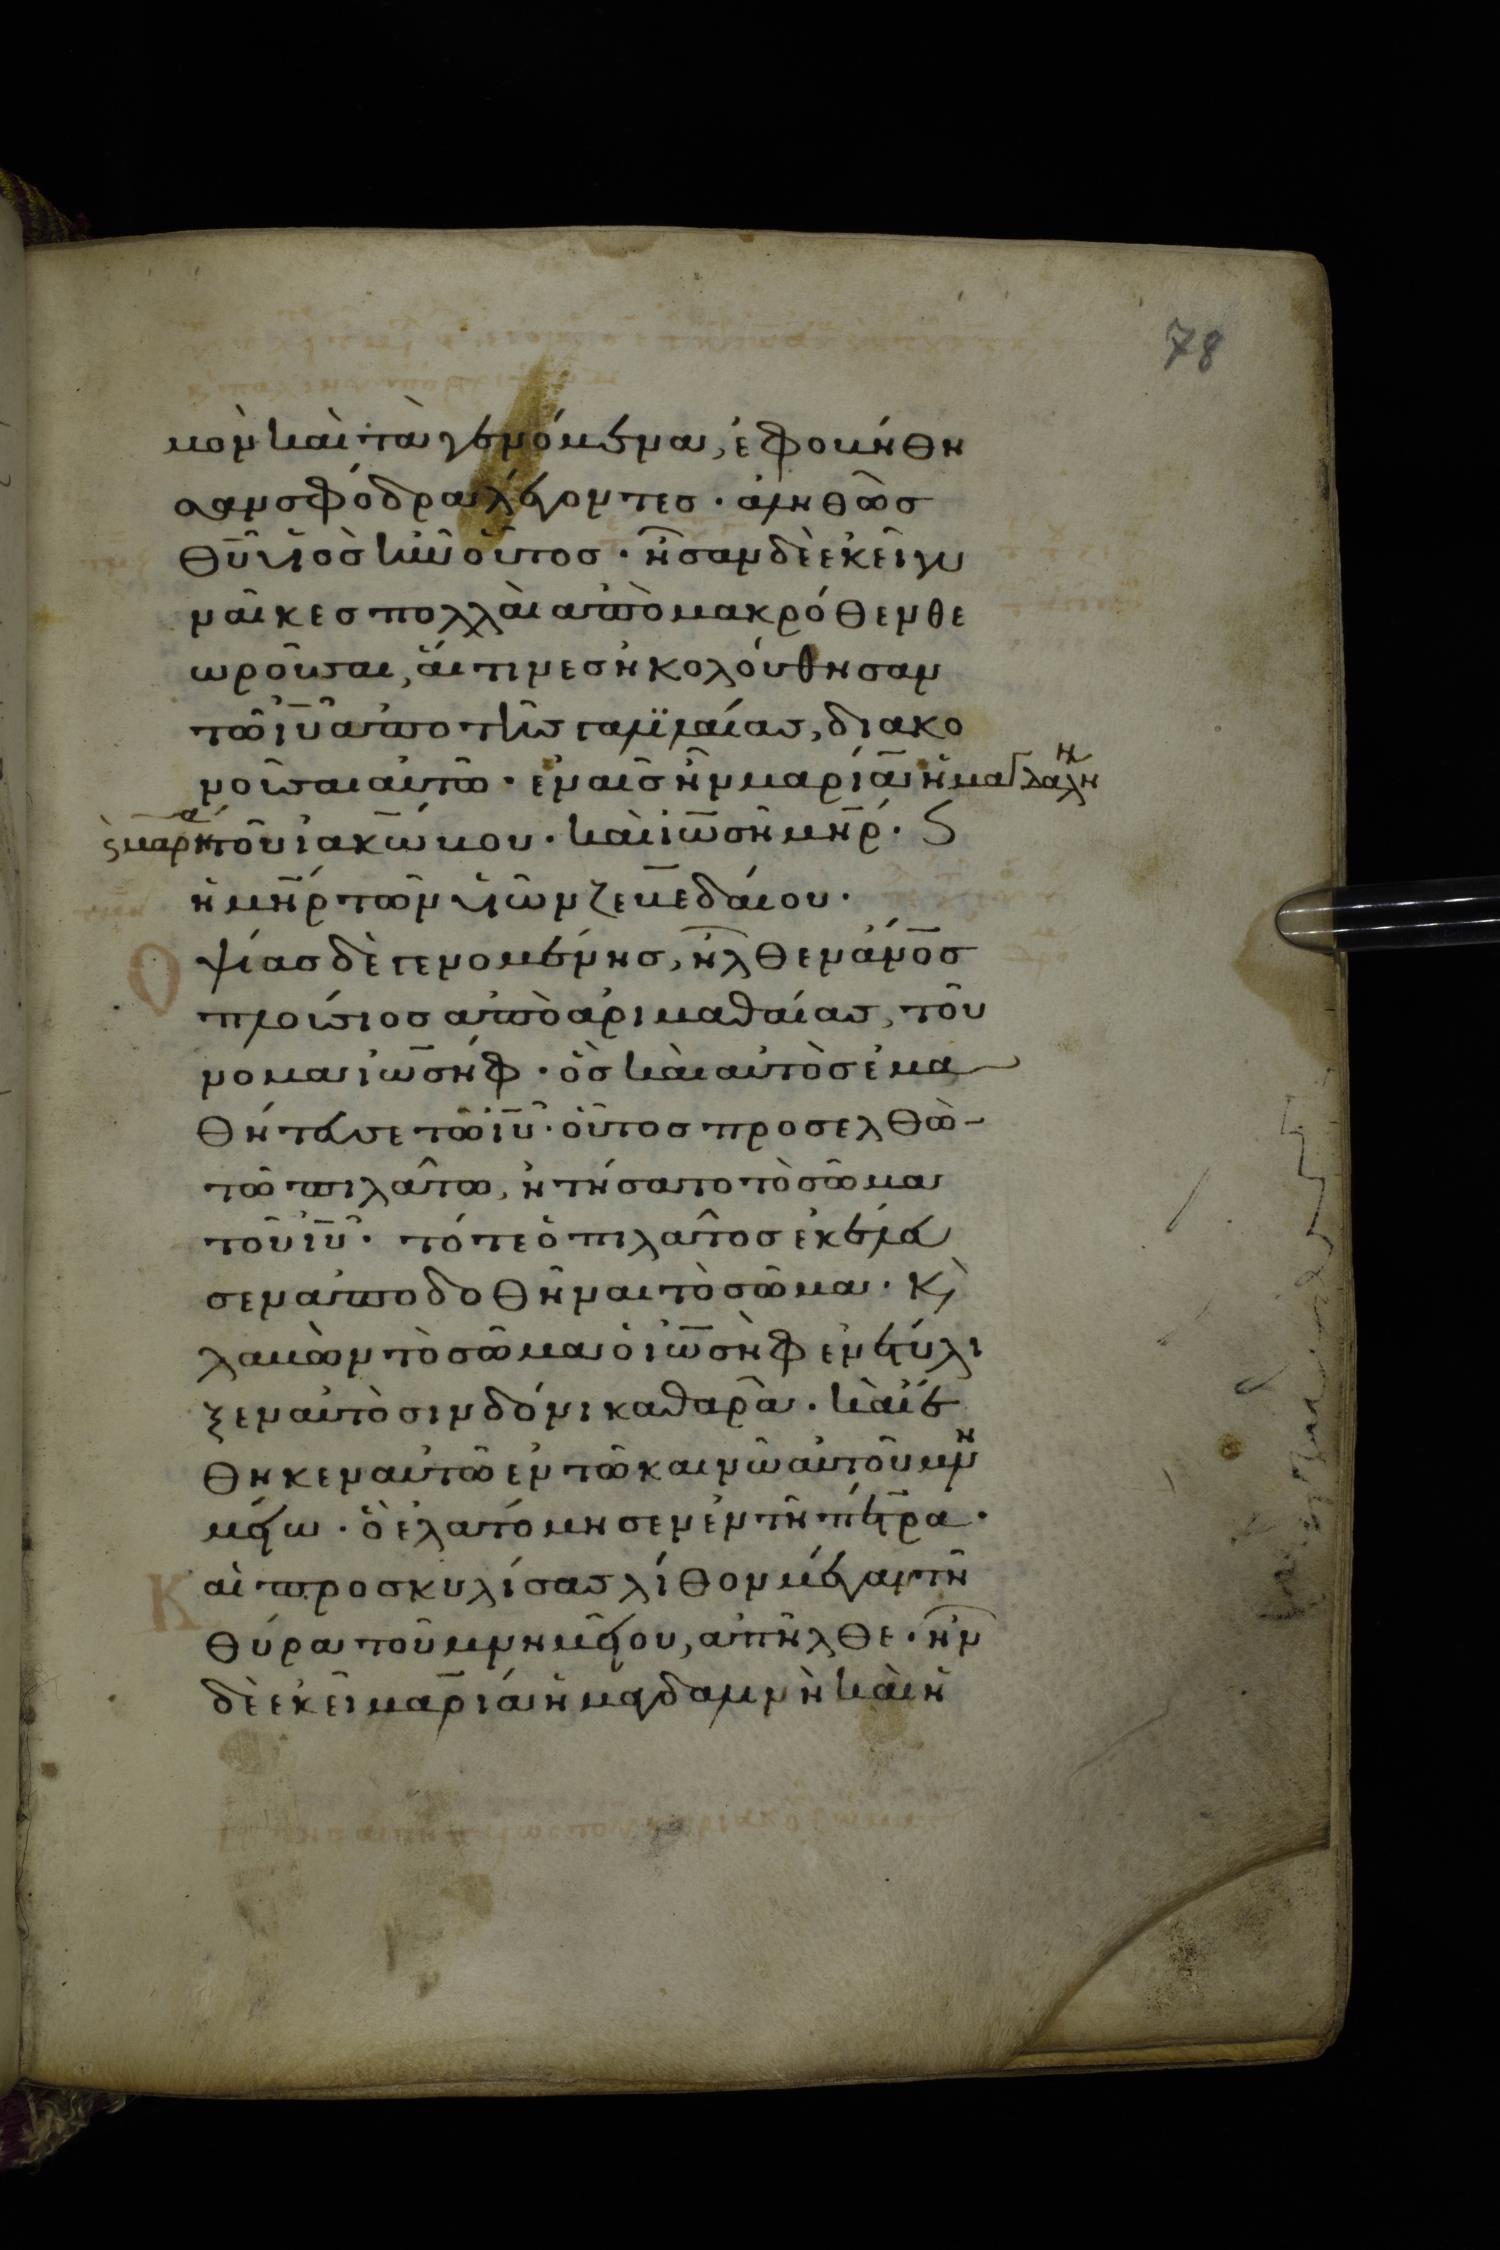 78
μον καὶ τὰ γενόμενα, ἐφοβήθη
σαν σφόδρα λέγοντες · ἀληθῶς
θῦ υἱὸσ ἦν οὗτοσ · ἦσαν δὲ ἐκεῖ γυ
ναῖκεσ πολλαὶ ἀπὸ μακρόθεν θε
ωροῦσαι, αἵτινεσ ἠκολούθησαν
τῶ ἰῦ ἀπὸ τῆσ γαλιλαίασ, διακο
νοῦσαι αὐτῶ · ἐν αἷσ ἦν μαρία ἡ μαγδαληνὴ
ϛ μαρία ἡ τοῦ ἰακώβου · καὶ ἰωσῆ μηρ · ϛ
ἡ μηρ τῶν υἱῶν ζεβεδαίου ·
Οψίασ δὲ γενομένησ, ἦλθεν ἄνοσ
πλούσιοσ ἀπὸ ἀριμαθαίασ, τοὔ
νομα ἰωσήφ · ὃσ καὶ αὐτὸσ ἐμα
θήτευσε τῶ ἰῦ · οὗτοσ προσελθὼ-
τῶ πιλάτω, ἠτήσατο τὸ σῶμα
τοῦ ἰῦ · τότε ὁ πιλᾶτοσ ἐκέλευ
σεν ἀποδοθῆναι τὸ σῶμα · κ,
λαβὼν τὸ σῶμα ὁ ἰωσὴφ ἐνετύλι
ξεν αὐτὸ σινδόνι καθαρᾶ · καὶ ἔ
θηκεν αὐτὸ ἐν τῶ καινῶ αὐτοῦ μνη
μείω · ὃ ἐλατόμησεν ἐν τῆ πέτρα ·
Καὶ προσκυλίσασ λίθον μέγαν τῆ
θύρα τοῦ μνημείου, ἀπῆλθε · ἦν
δὲ ἐκεῖ μαρία ἡ μαγδαληνὴ καὶ ἡ